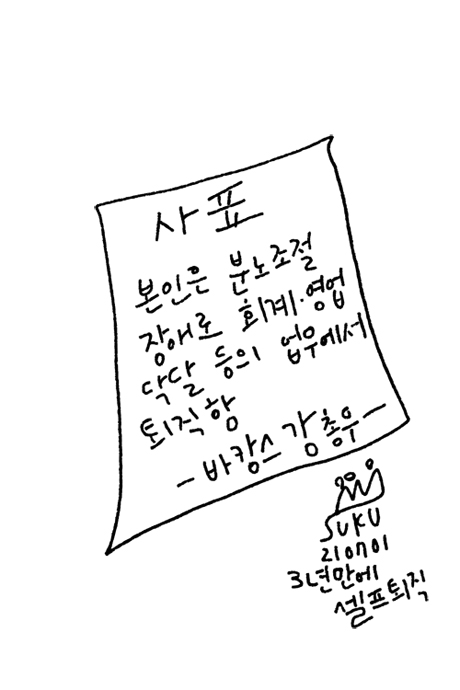 사표
본인은 분노조절
장애로 회계·영업
닥달 등의 업무에서
퇴직함
-바캉스 강총우-
SUKU
210701
3년만에
셀프퇴직